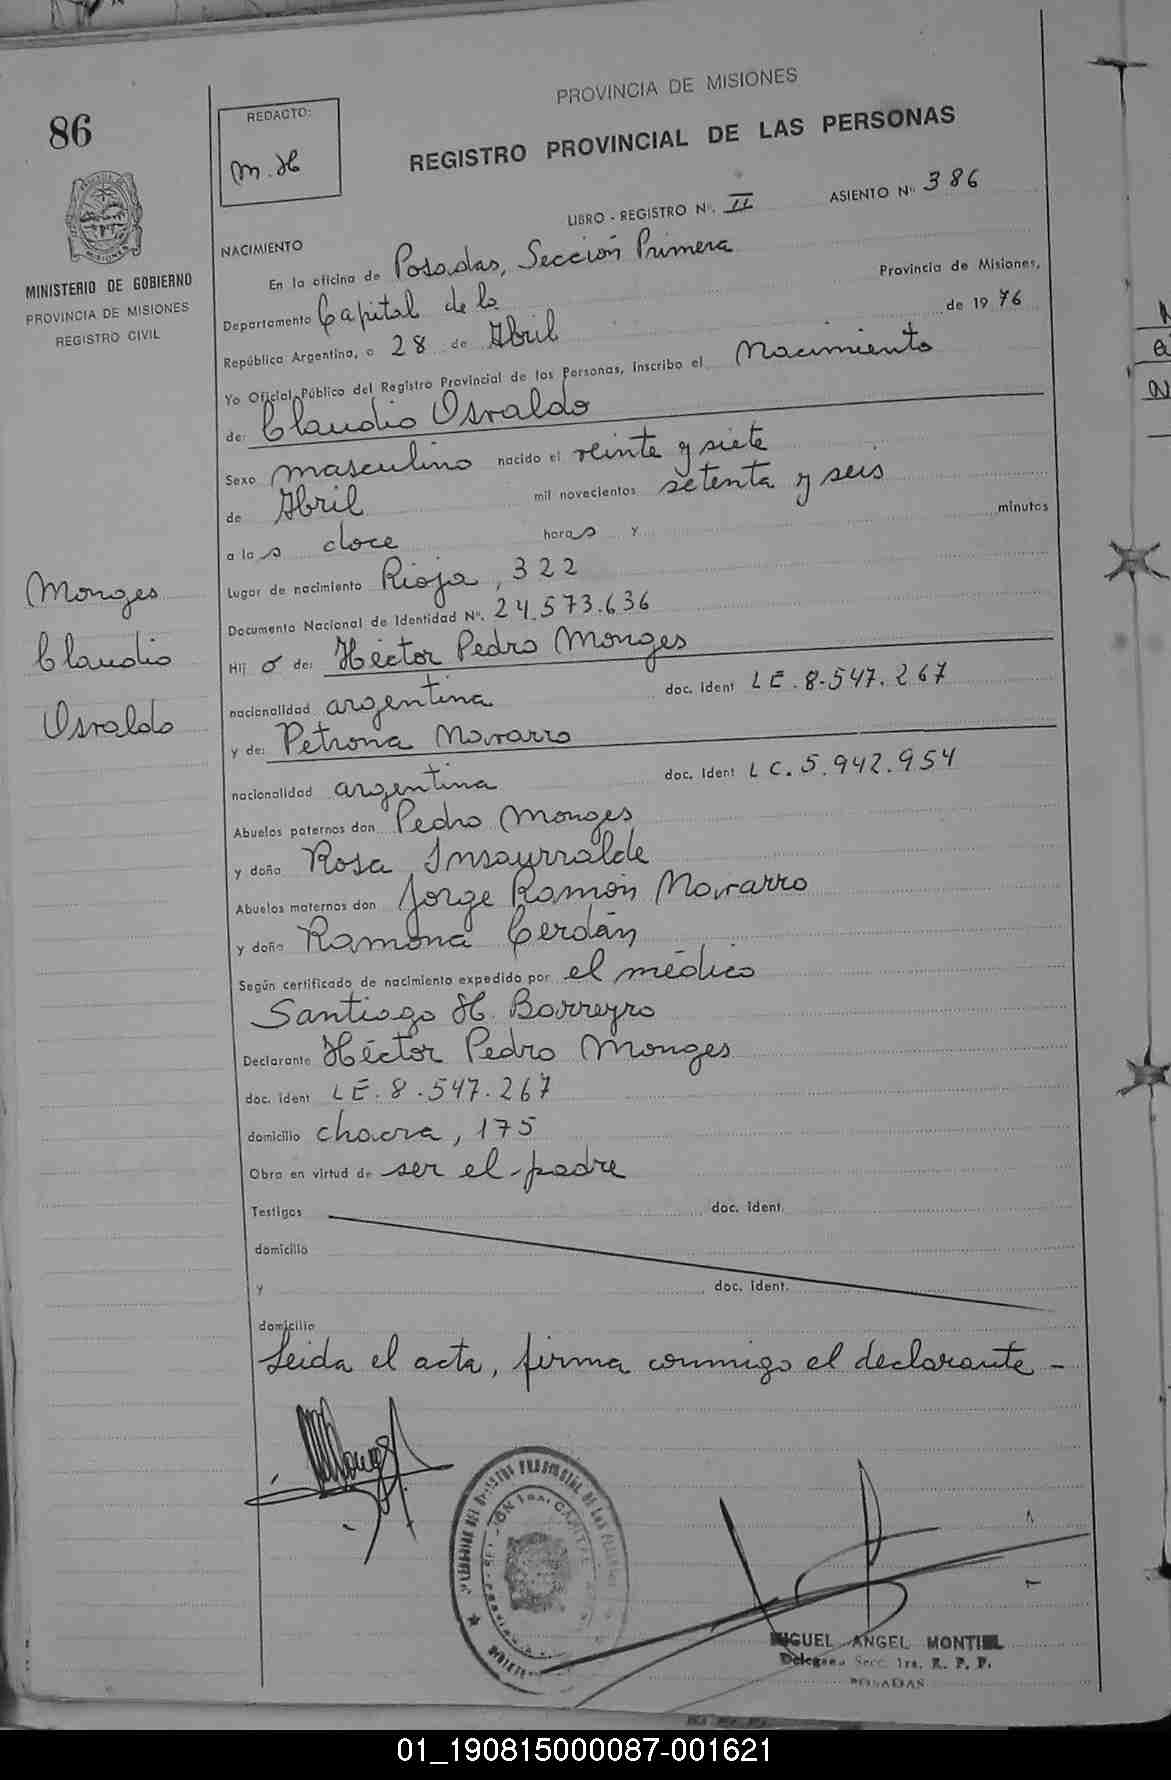 86
REDACTO:
M. H
PROVINCIA DE MISIONES
REGISTRO PROVINCIAL DE LAS PERSONAS
LIBRO - REGISTRO Nº. II ASIENTO Nº 386
MINISTERIO DE GOBIERNO
PROVINCIA DE MISIONES
REGISTRO CIVIL
NACIMIENTO
En la oficina de Posadas, Sección Primera
Departamento Capital de la Provincia de Misiones,
República Argentina, a 28 de Abril de 1976
Yo Oficial Público del Registro Provincial de las Personas, inscribo el Nacimiento
de: Claudio Osvaldo
Sexo masculino nacido el veinte y siete
de Abril mil novecientos setenta y seis
a las doce horas y minutos
Monges
Claudio
Osvaldo
Lugar de nacimiento Rioja, 322
Documento Nacional de Identidad Nº. 24.573.636
Hijo de: Héctor Pedro Monges
nacionalidad argentina doc. ident LE. 8.547.267
y de: Petrona Navarro
nacionalidad argentina doc. ident LC. 5.942.954
Abuelos paternos don Pedro Monges
y doña Rosa Insaurralde
Abuelos maternos don Jorge Ramón Navarro
y doña Ramona Cerdán
Según certificado de nacimiento expedido por el médico
Santiago H. Barreyro
Declarante Héctor Pedro Monges
doc. ident LE. 8.547.267
domicilio chacra, 175
Obra en virtud de ser el padre
Testigos doc. ident.
domicilio
y doc. ident.
domicilio
Leida el acta, firma conmigo el declarante -
MIGUEL ANGEL MONTIEL
Delegado Secc. 1ra. R. P. P.
POSADAS
01_190815000087-001621